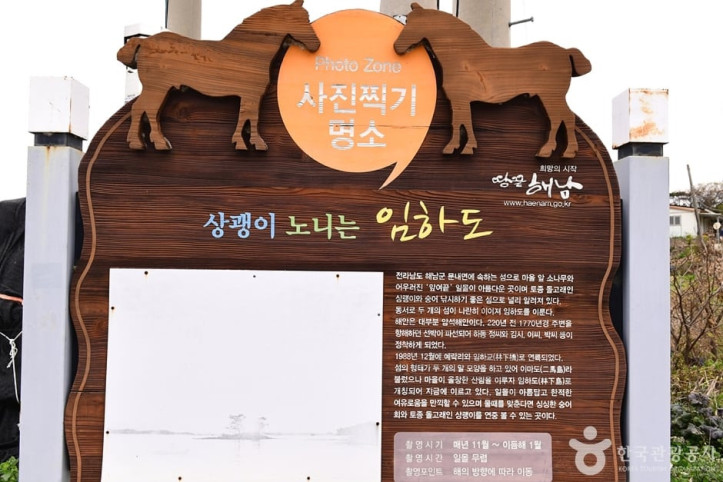 Photo Zone
사진찍기
명소
희망의 시작
땅끝 해남
www.haenam.go.kr
상괭이 노니는 임하도
전라남도 해남군 문내면에 속하는 섬으로 마을 앞 소나무와
일몰이 아름다운 곳이며 토종 돌고래인
상괭이와 숭어 낚시하기 좋은 섬으로 널리 알려져 있다.
동서로 두 개의 섬이 나란히 이어져 임하도를 이룬다.
해안은 대부분 암석해안이다. 220년 전 1770년경 주변을
항해하던 선박이 파선되어 하동 정씨와 김씨, 이씨, 박씨 등이
정착하게 되었다.
1988년 12월에 예락리와 임하교(林下橋)로 연륙되었다.
섬의 형태가 두 개의 말 모양을 하고 있어 이마도(二馬島)라
불렀으나 마을이 울창한 산림을 이루자 임하도(林下島)로
개칭되어 지금에 이르고 있다. 일몰이 아름답고 한적한
여유로움을 만끽할 수 있으며 물때를 맞춘다면 싱싱한 숭어
회와 토종 돌고래인 상괭이를 연중 볼 수 있는 곳이다.
촬영시기 매년 11월 ~ 이듬해 1월
촬영시간 일몰 무렵
촬영포인트 해의 방향에 따라 이동
한국관광공사